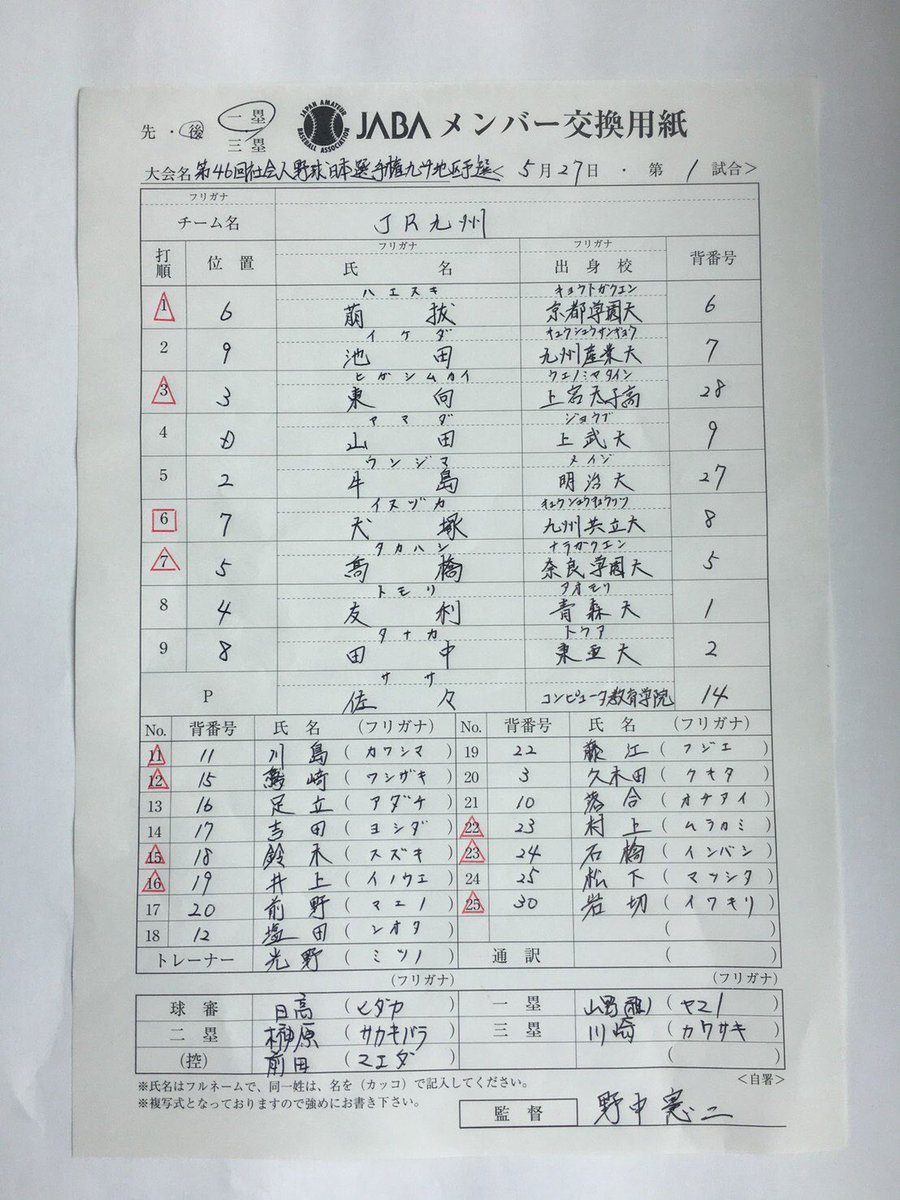 先・後 一塁 三塁
JAPAN AMATEUR BASEBALL ASSOCIATION
JABA メンバー交換用紙
大会名 第46回社会人野球日本選手権九州地区予選<5月27日・第1試合>
フリガナ
チーム名 JR九州
フリガナ フリガナ
打順 位置 氏名 出身校 背番号
ハエヌキ キョウトガクエン
1 6 萠抜 京都学園大 6
イケダ キュウシュウサンギョウ
2 9 池田 九州産業大 7
ヒガシムカイ ウエノミヤタイシ
3 3 東向 上宮太子高 28
ヤマダ ジョウブ
4 D 山田 上武大 9
ウシジマ メイジ
5 2 牛島 明治大 27
イヌヅカ キュウシュウキョウリツ
6 7 犬塚 九州共立大 8
タカハシ ナラガクエン
7 5 髙橋 奈良学園大 5
トモリ アオモリ
8 4 友利 青森大 1
タナカ トウア
9 8 田中 東亜大 2
ササ
P 佐々 コンピュータ教育学院 14
No. 背番号 氏名 (フリガナ) No. 背番号 氏名 (フリガナ)
11 11 川島 (カワシマ) 19 22 藤江 (フジエ)
12 15 鷲崎 (ワシザキ) 20 3 久木田 (クキタ)
13 16 足立 (アダチ) 21 10 落合 (オチアイ)
14 17 吉田 (ヨシダ) 22 23 村上 (ムラカミ)
15 18 鈴木 (スズキ) 23 24 石橋 (イシバシ)
16 19 井上 (イノウエ) 24 25 松下 (マツシタ)
17 20 前野 (マエノ) 25 30 岩切 (イワキリ)
18 12 塩田 (シオタ) ( )
トレーナー 光野 (ミツノ) 通訳 ( )
(フリガナ) (フリガナ)
球審 日高 (ヒダカ) 一塁 山野(雅) (ヤマノ)
二塁 榊原 (サカキバラ) 三塁 川崎 (カワサキ)
(控) 前田 (マエダ) ( )
※氏名はフルネームで、同一姓は、名を(カッコ)で記入してください。 <自署>
※複写式となっておりますので強めにお書き下さい。
監督 野中憲二